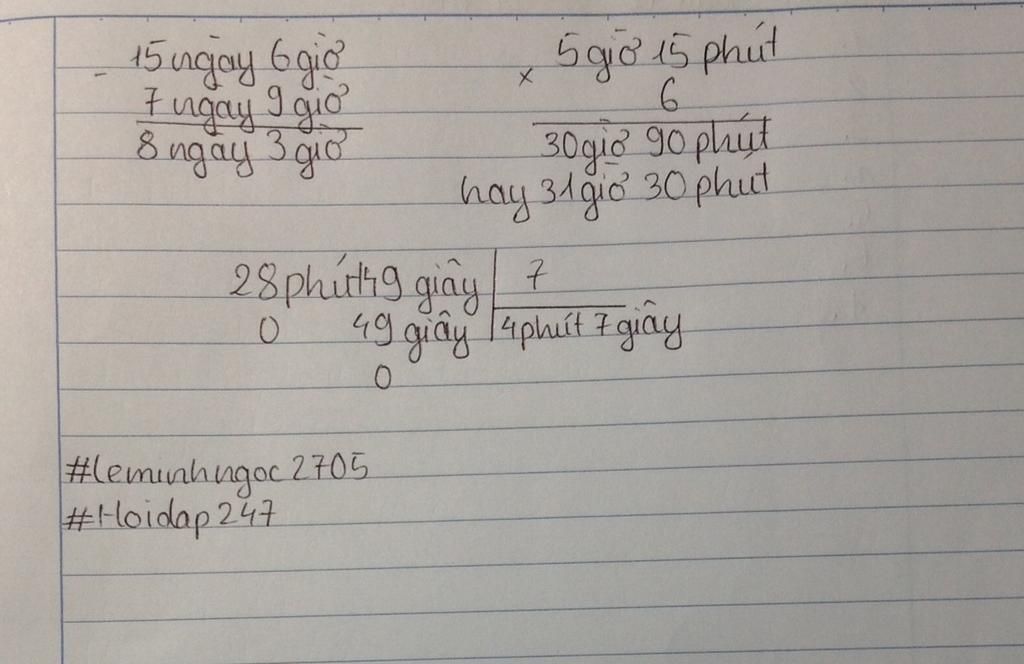 - 15 ngày 6 giờ
7 ngày 9 giờ
8 ngày 3 giờ
x 5 giờ 15 phút
6
30 giờ 90 phút
hay 31 giờ 30 phút
28 phút 49 giây | 7
0 49 giây | 4 phút 7 giây
0
#leminhngoc2705
#Hoidap247